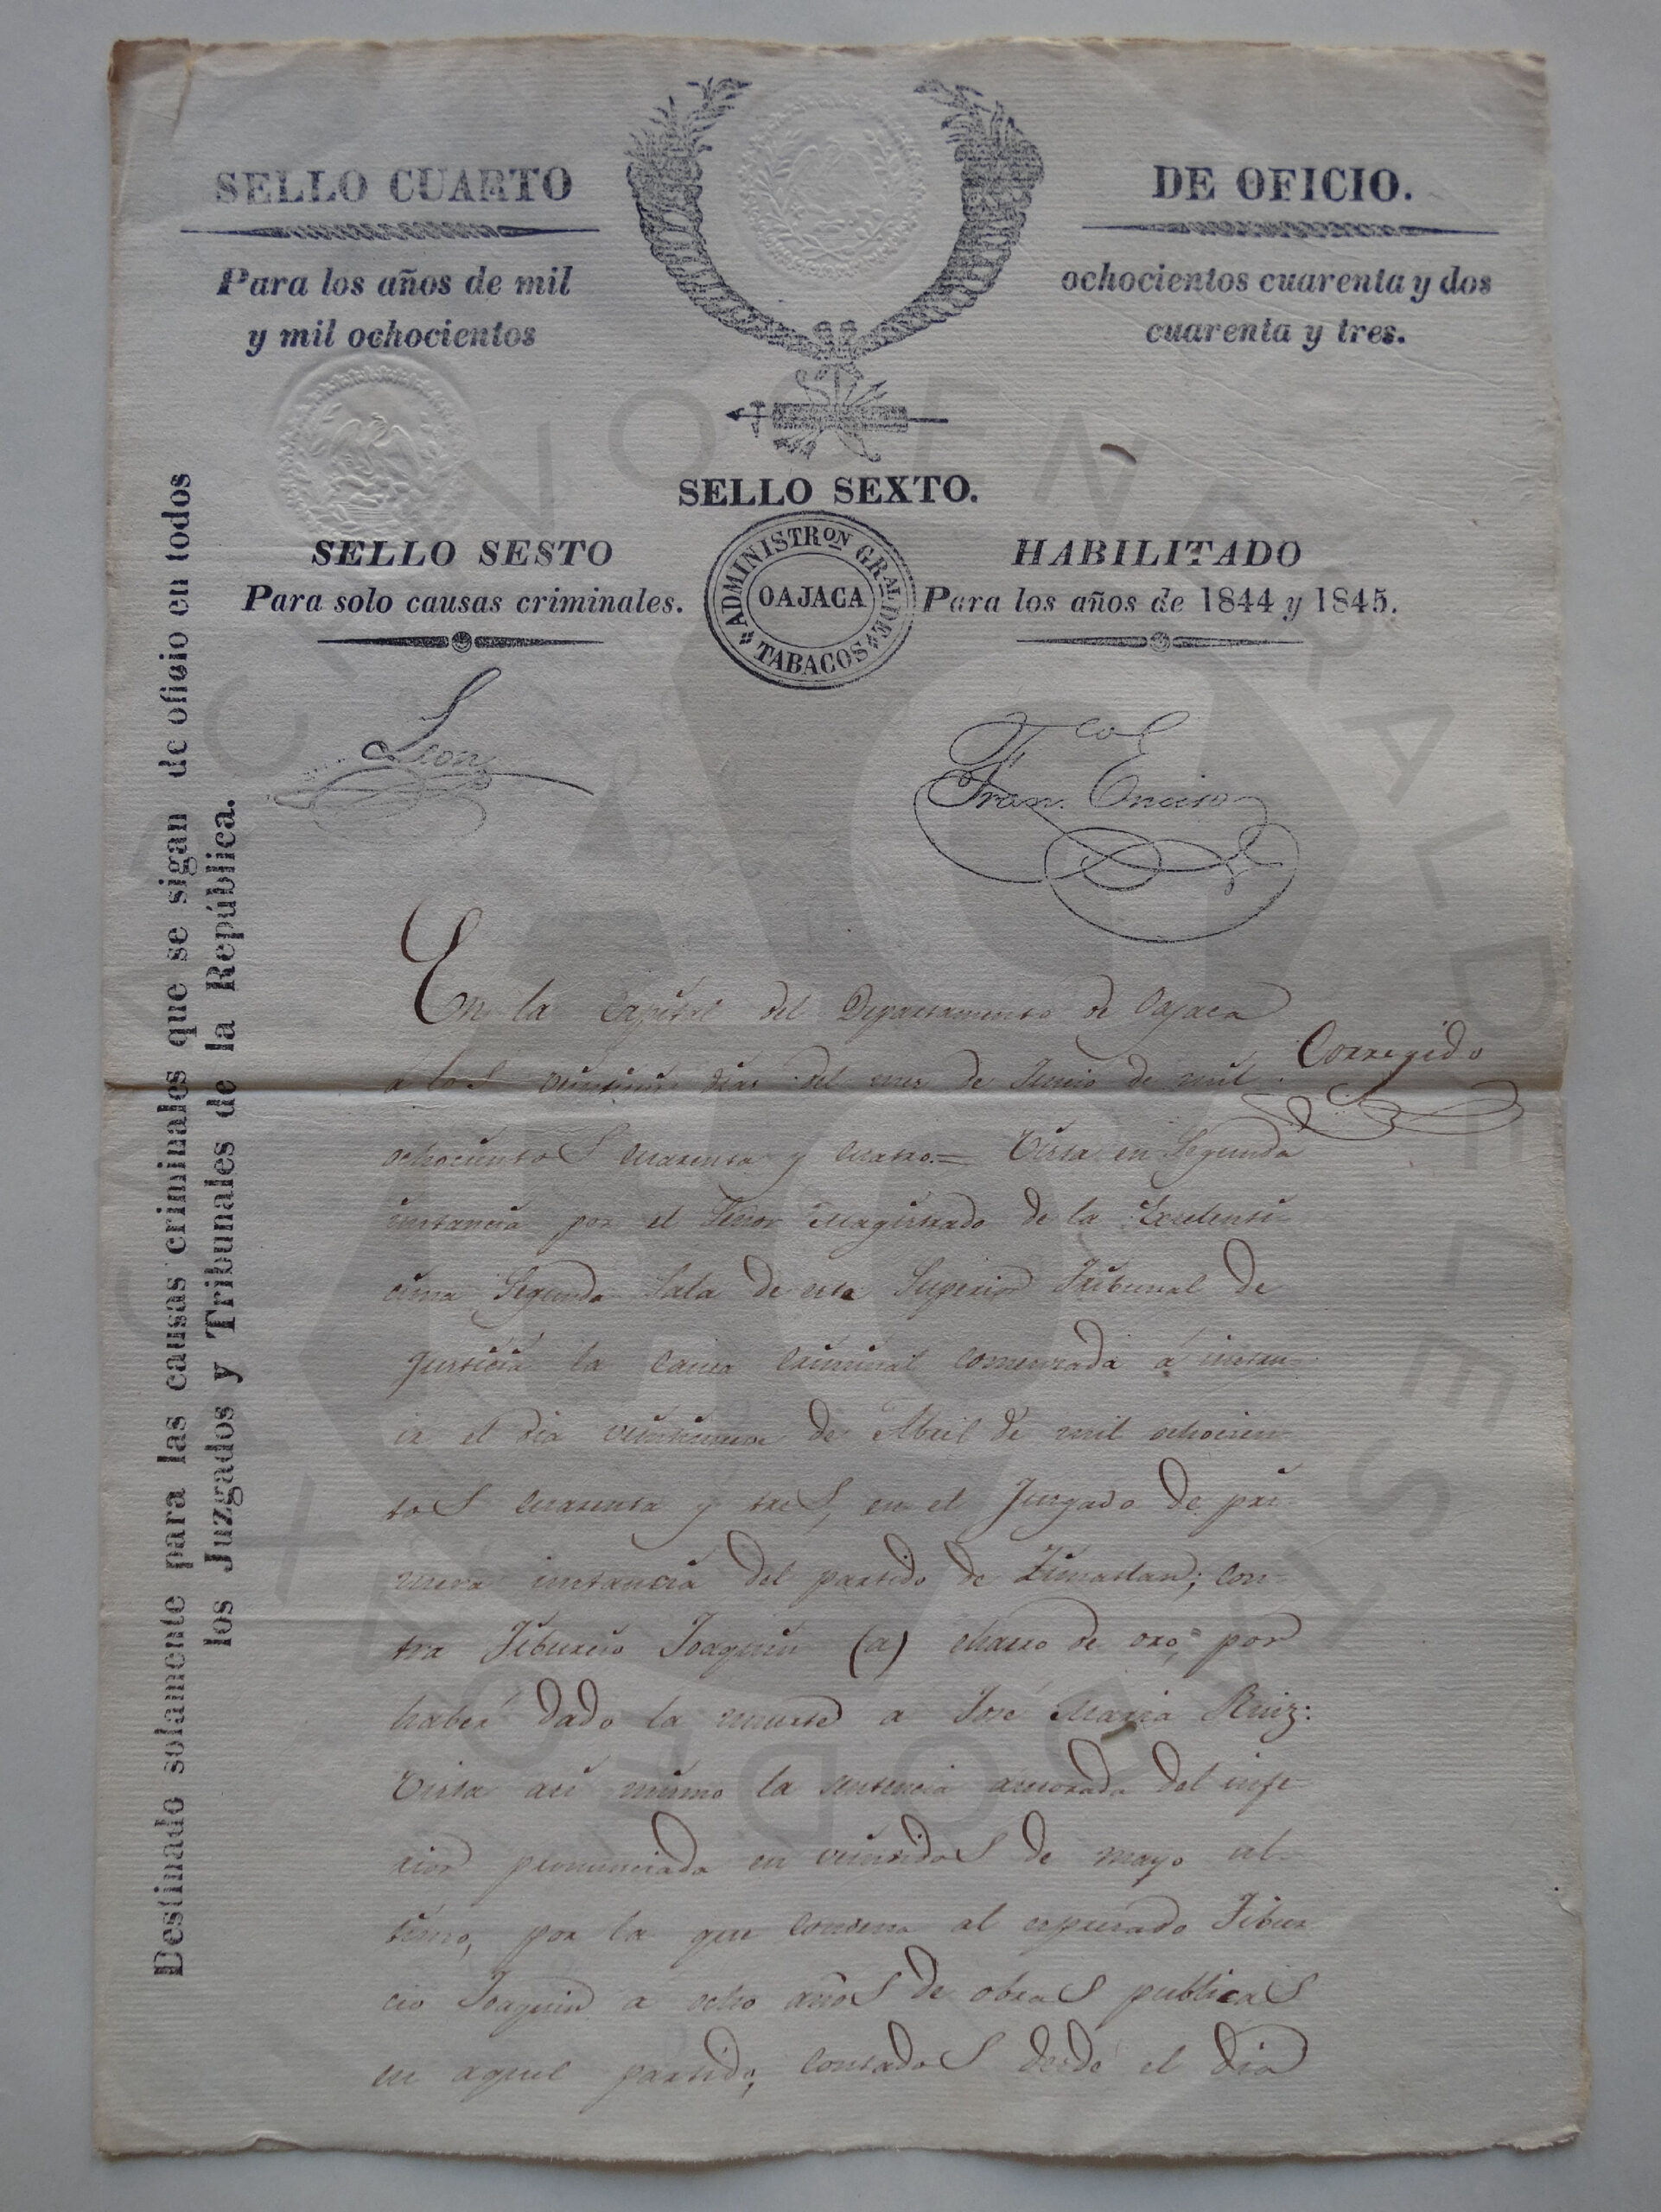 SELLO CUARTO DE OFICIO.
Para los años de mil ochocientos cuarenta y dos
y mil ochocientos cuarenta y tres.
SELLO SEXTO.
SELLO SESTO HABILITADO
Para solo causas criminales. Para los años de 1844 y 1845.
ADMINISTRON GRAL DE TABACOS
OAJACA
Leon
Franco Enciso
Destinado solamente para las causas criminales que se sigan de oficio en todos
los Juzgados y Tribunales de la República.
En la Capital del Departamento de Oajaca
á los dias del mes de Junio de mil
Corregido
ochocientos cuarenta y cuatro.= Vista en Segunda
instancia por el Señor Magistrado de la Excelentí-
cima Segunda Sala de este Superior Tribunal de
Justicia la causa criminal comenzada á instru-
ir el dia de Abril de mil ochocien-
tos cuarenta y tres, en el Juzgado de pri-
mera instancia del partido de Zimatlan; con-
tra Tiburcio Joaquin (a) charro de oro, por
haber dado la muerte a José Maria Ruiz:
Vista asi mismo la sentencia del infe-
rior pronunciada en veintidos de mayo ul-
timo, por la que condena al espresado Tibur-
cio Joaquin a ocho años de obras publicas
en aquel partido, contados desde el dia
ARCHIVO GENERAL DEL ESTADO DE OAXACA